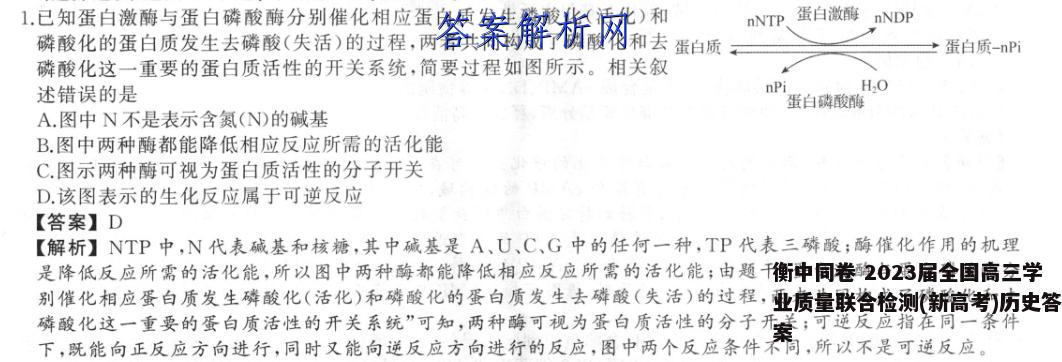 1.已知蛋白激酶与蛋白磷酸酶分别催化相应蛋 (活化)和
磷酸化的蛋白质发生去磷酸(失活)的过程,两 磷酸化和去
磷酸化这一重要的蛋白质活性的开关系统,简要过程如图所示。相关叙
述错误的是
答案解析网
nNTP 蛋白激酶 nNDP
蛋白质 蛋白质-nPi
nPi H₂O
蛋白磷酸酶
A.图中 N不是表示含氮(N)的碱基
B.图中两种酶都能降低相应反应所需的活化能
C.图示两种酶可视为蛋白质活性的分子开关
D.该图表示的生化反应属于可逆反应
【答案】D
【解析】NTP 中,N 代表碱基和核糖,其中碱基是 A、U、C、G 中的任何一种,TP 代表三磷酸;酶催化作用的机理
是降低反应所需的活化能,所以图中两种酶都能降低相应反应所需的活化能;由题干
别催化相应蛋白质发生磷酸化(活化)和磷酸化的蛋白质发生去磷酸(失活)的过程,
磷酸化这一重要的蛋白质活性的开关系统”可知,两种酶可视为蛋白质活性的分子开关;可逆反应指在同一条件
下,既能向正反应方向进行,同时又能向逆反应方向进行的反应,图中两个反应条件不同,所以不是可逆反应。
衡中同卷 2023届全国高三学
业质量联合检测(新高考)历史答
案